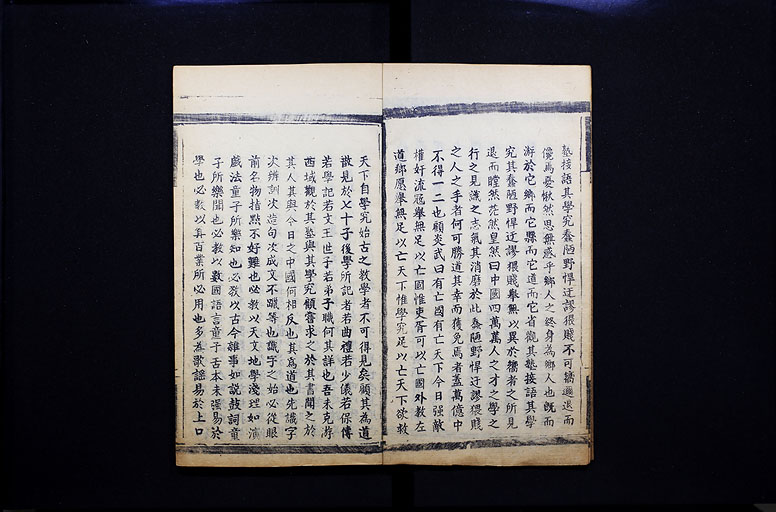 塾接語其學究蠢陋野悍迂謬猥賤不可嚮邇退而
儳焉憂愀然思無惑乎鄉人之終身為鄉人也既而
游於它鄉而它縣而它道而它省觀其塾接語其學
究其蠢陋野悍迂謬猥賤舉無以異於嚮者之所見
退而瞠然茫然皇然曰中國四萬萬人之才之學之
行之見識之志氣其消磨於此蠢陋野悍迂謬猥賤
之人之手者何可勝道其幸而獲免焉者蓋萬億中
不得一二也顧炎武曰有亡國有亡天下今日強敵
權奸流寇舉無足以亡國惟吏胥可以亡國外教左
道鄉愿舉無足以亡天下惟學究足以亡天下欲救
天下自學究始古之教學者不可得見矣顧其為道
散見於七十子後學所記者若曲禮若少儀若保傅
若學記若文王世子若弟子職何其詳也吾未克游
西域觀於其塾與其學究顧嘗求之於其書聞之於
其人其與今日之中國何相反也其為道也先識字
次辨訓次造句次成文不躐等也識字之始必從眼
前名物指點不好難也必教以天文地學淺理如演
戲法童子所樂知也必教以古今雜事如說鼓詞童
子所樂聞也必教以數國語言童子舌本未強易於
學也必教以算百業所必用也多為歌謠易於上口